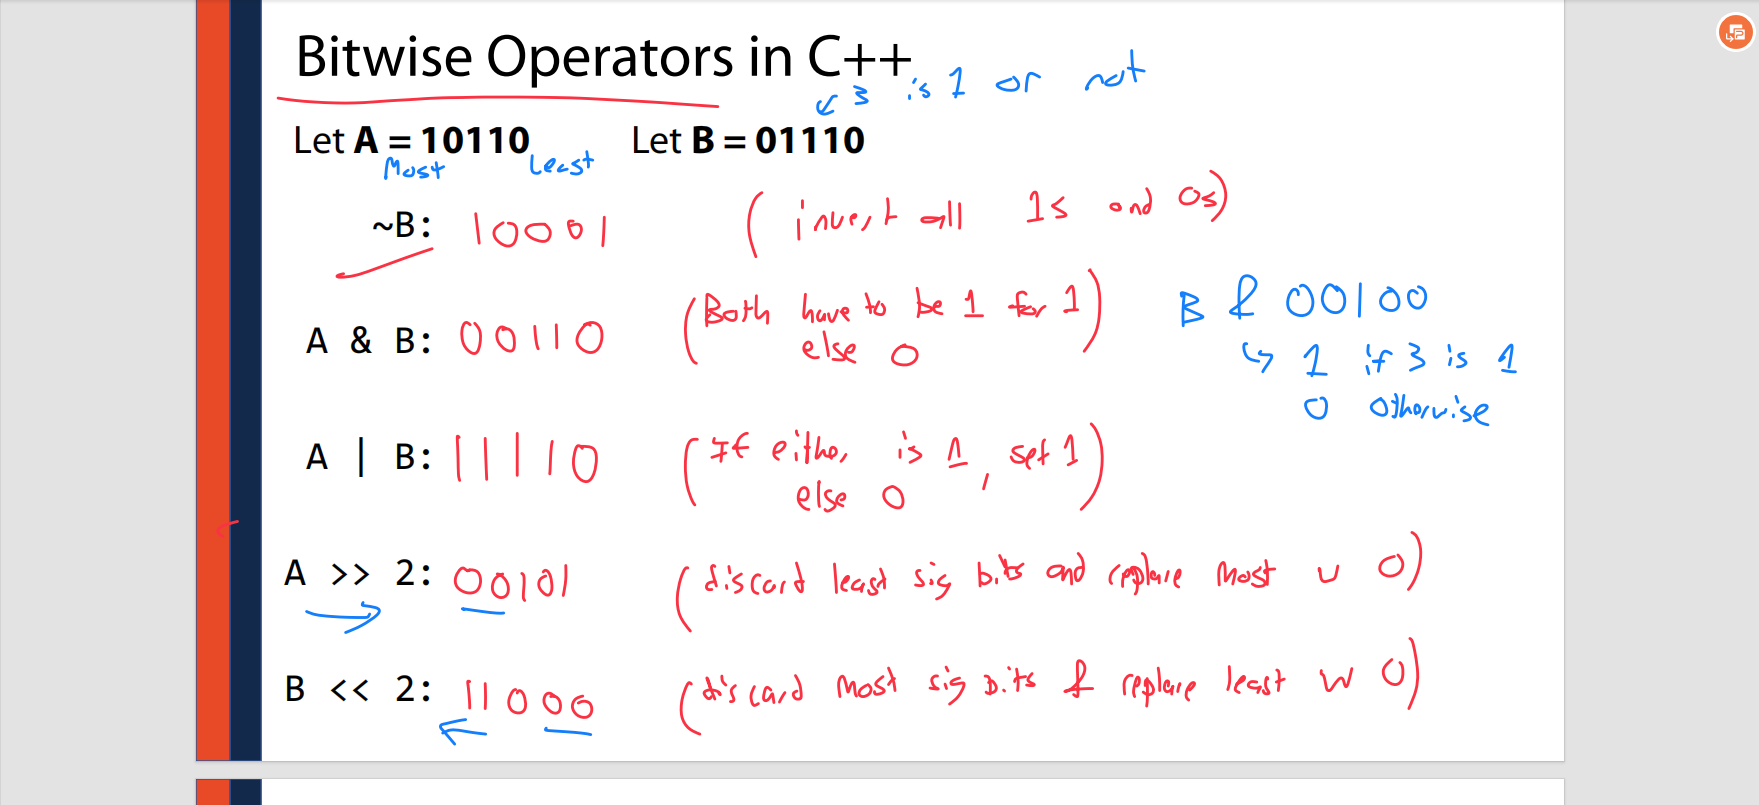 Bitwise Operators in C++
3 is 1 or not
Let A = 10110 Let B = 01110
Most Least
~B: 10001 (invert all 1s and 0s)
A & B: 00110 (Both have to be 1 for 1
else 0)
B & 00100
1 if 3 is 1
0 otherwise
A | B: 11110 (If either is 1, set 1
else 0)
A >> 2: 00101 (discard least sig bits and replace most w 0)
B << 2: 11000 (discard most sig bits & replace least w 0)